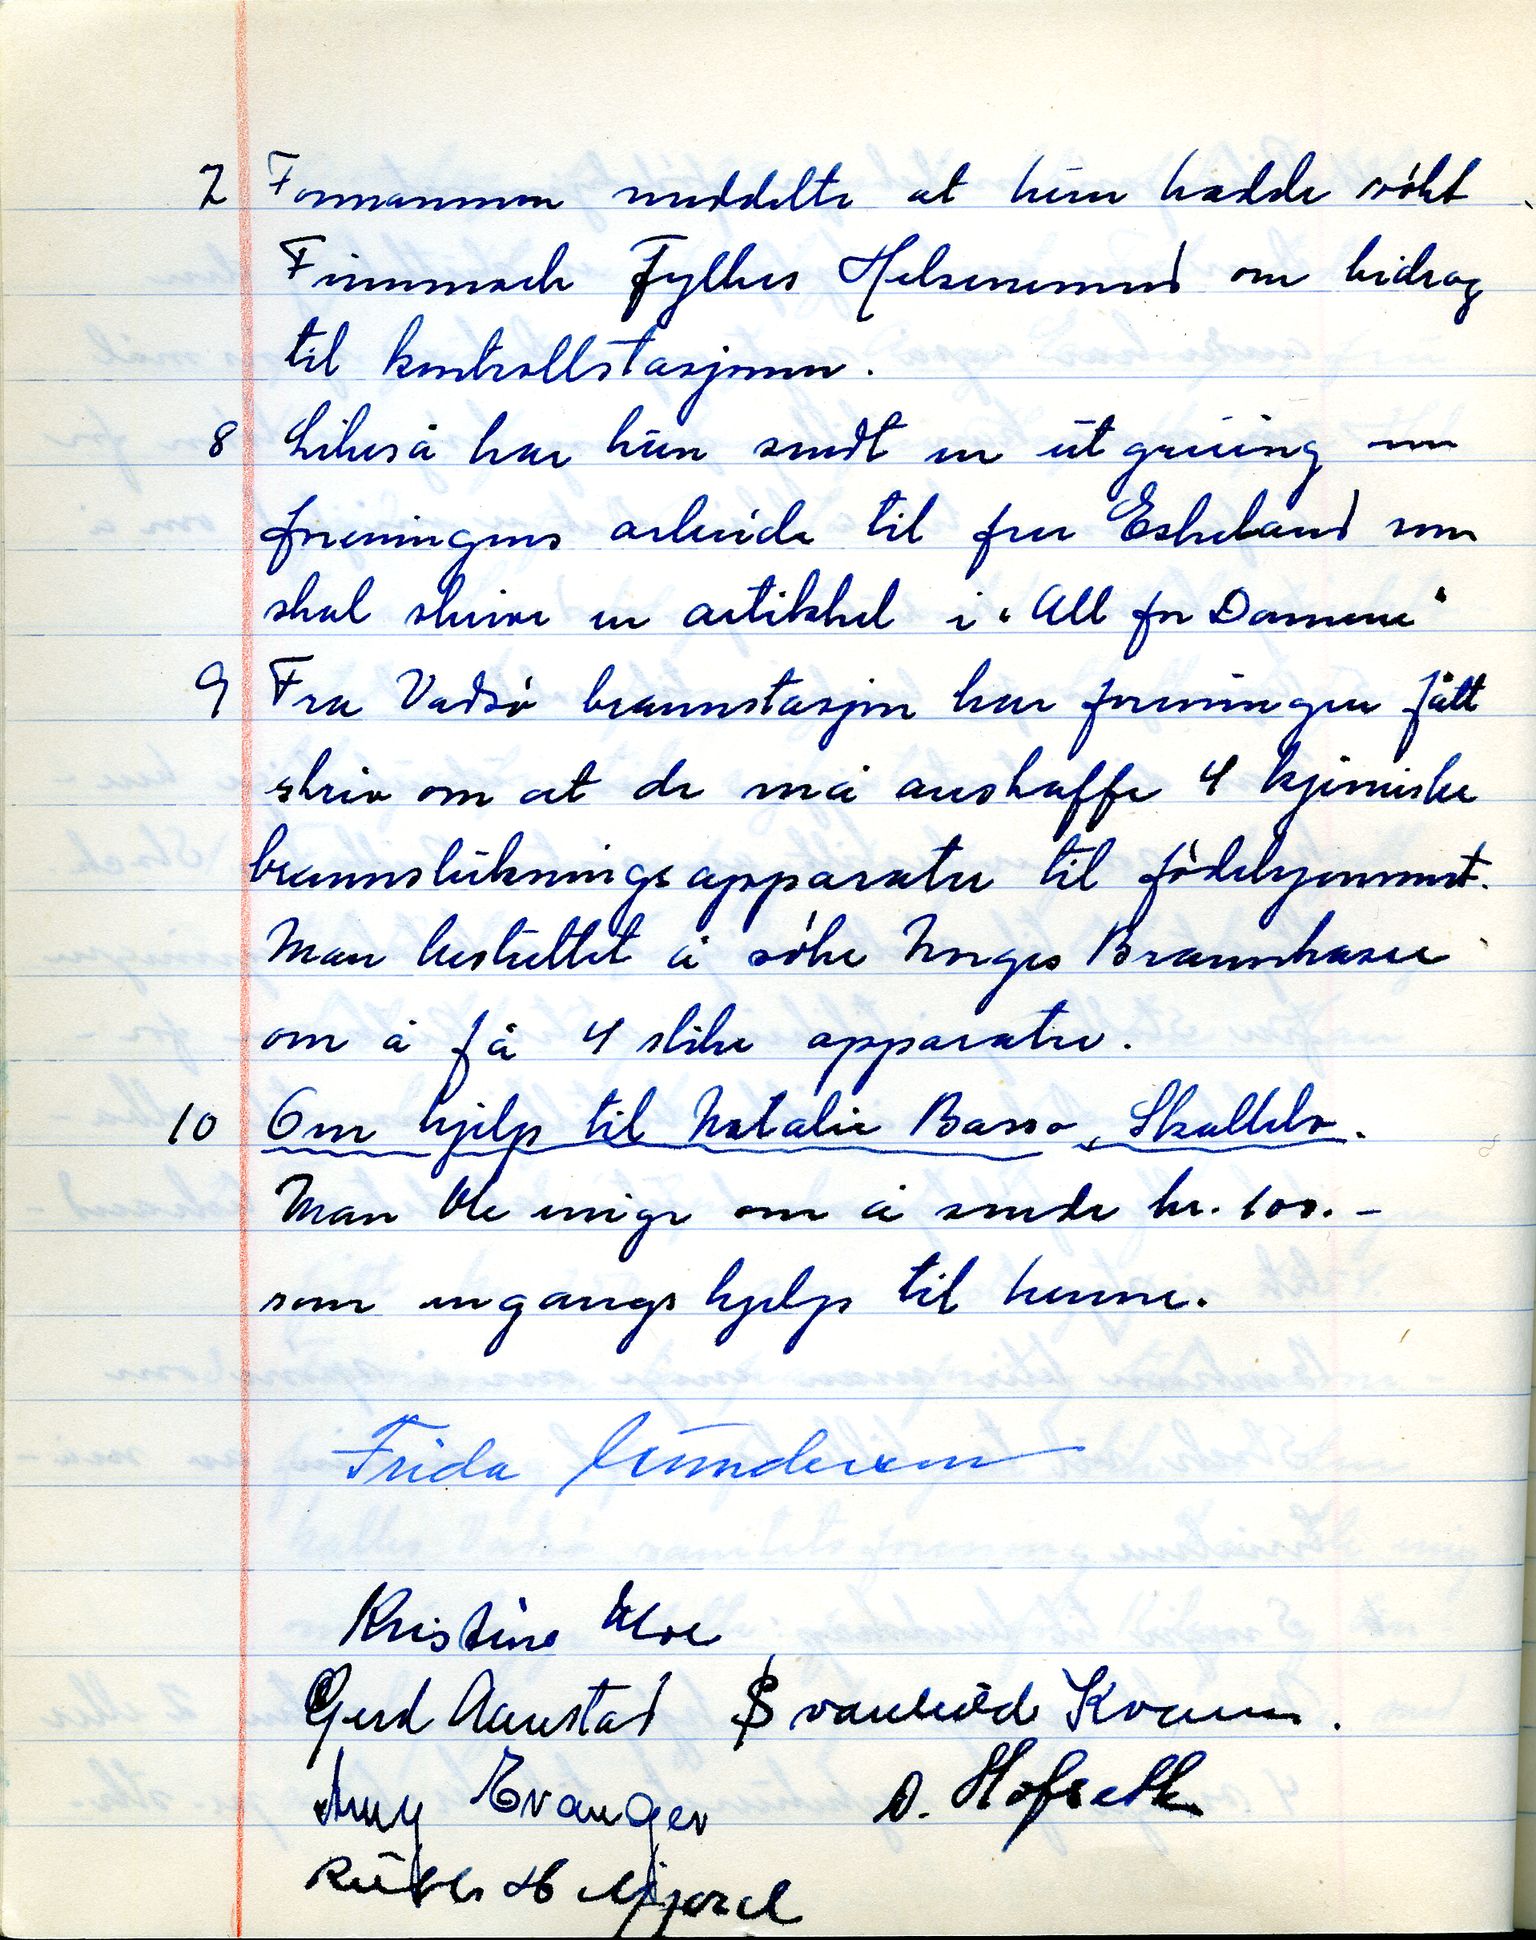 7 Formannen meddelte at hun hadde søkt
Finnmark Fylkes Helsenemnd om bidrag
til kontrollstasjonen.
8 Likeså har hun sendt en utgreiing om
foreningens arbeide til fru Eskeland som
skal skrive en artikkel i "All for Damene"
9 Fra Vadsø brannstasjon har foreningen fått
skriv om at de må anskaffe 4 kjemiske
brannslukningsapparater til fødehjemmet.
Man besluttet å søke Norges Brannkasse
om å få 4 slike apparater.
10 Om hjelp til Natalie Basso, Skallelv.
Man ble enige om å sende kr. 100.-
som engangshjelp til henne.
Frida Gundersen
Kristine Moe
Gerd Aarestad Svanhild Kvam.
Amy Evanger O. Hofseth
Ruth H